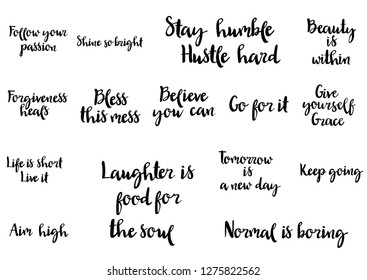 Follow your
passion
Shine so bright
Stay humble
Hustle hard
Beauty
is
within
Forgiveness
heals
Bless
this mess
Believe
you can
Go for it
Give
yourself
Grace
Life is short
Live it
Laughter is
food for
the soul
Tomorrow
is
a new day
Keep going
Aim high
Normal is boring
shutterstock.com · 1275822562